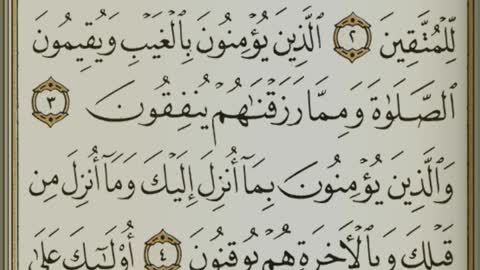 لِّلْمُتَّقِينَ ٢ ٱلَّذِينَ يُؤْمِنُونَ بِٱلْغَيْبِ وَيُقِيمُونَ
ٱلصَّلَوٰةَ وَمِمَّا رَزَقْنَٰهُمْ يُنفِقُونَ ٣
وَٱلَّذِينَ يُؤْمِنُونَ بِمَآ أُنزِلَ إِلَيْكَ وَمَآ أُنزِلَ مِن
قَبْلِكَ وَبِٱلْأَخِرَةِ هُمْ يُوقِنُونَ ٤ أُو۟لَٰٓئِكَ عَلَىٰ